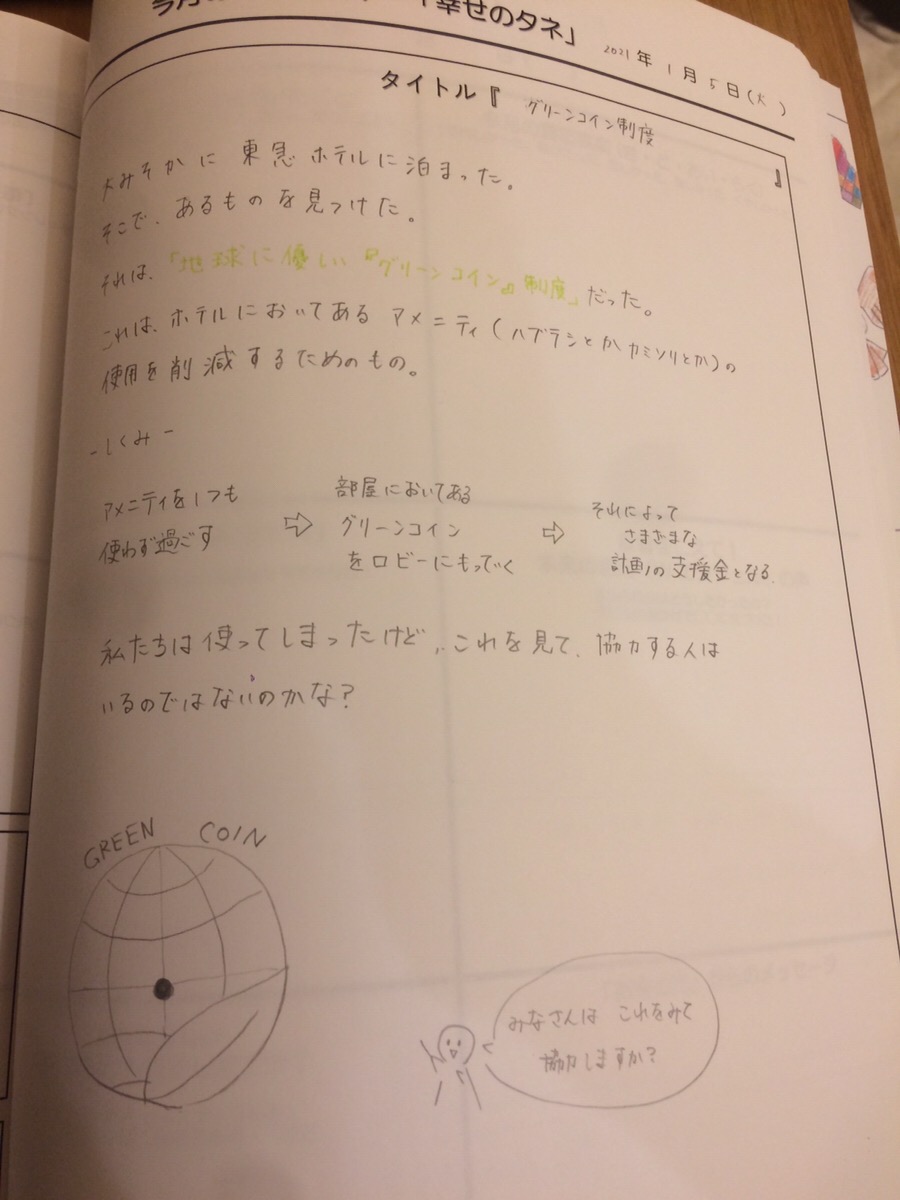 幸せのタネ」
2021年 1月5日(火)
タイトル『 グリーンコイン制度
』
大みそかに 東急ホテルに泊まった。
そこで、あるものを見つけた。
それは、「地球に優しい『グリーンコイン』制度」だった。
これは、ホテルにおいてある アメニティ(ハブラシとか カミソリとか)の
使用を削減するためのもの。
-しくみ-
アメニティを1つも
使わず過ごす
⇨
部屋においてある
グリーンコイン
をロビーにもっていく
⇨
それによって
さまざまな
計画の支援金となる.
私たちは使ってしまったけど、これを見て、協力する人は
いるのではないのかな?
GREEN COIN
みなさんは これをみて
協力しますか?